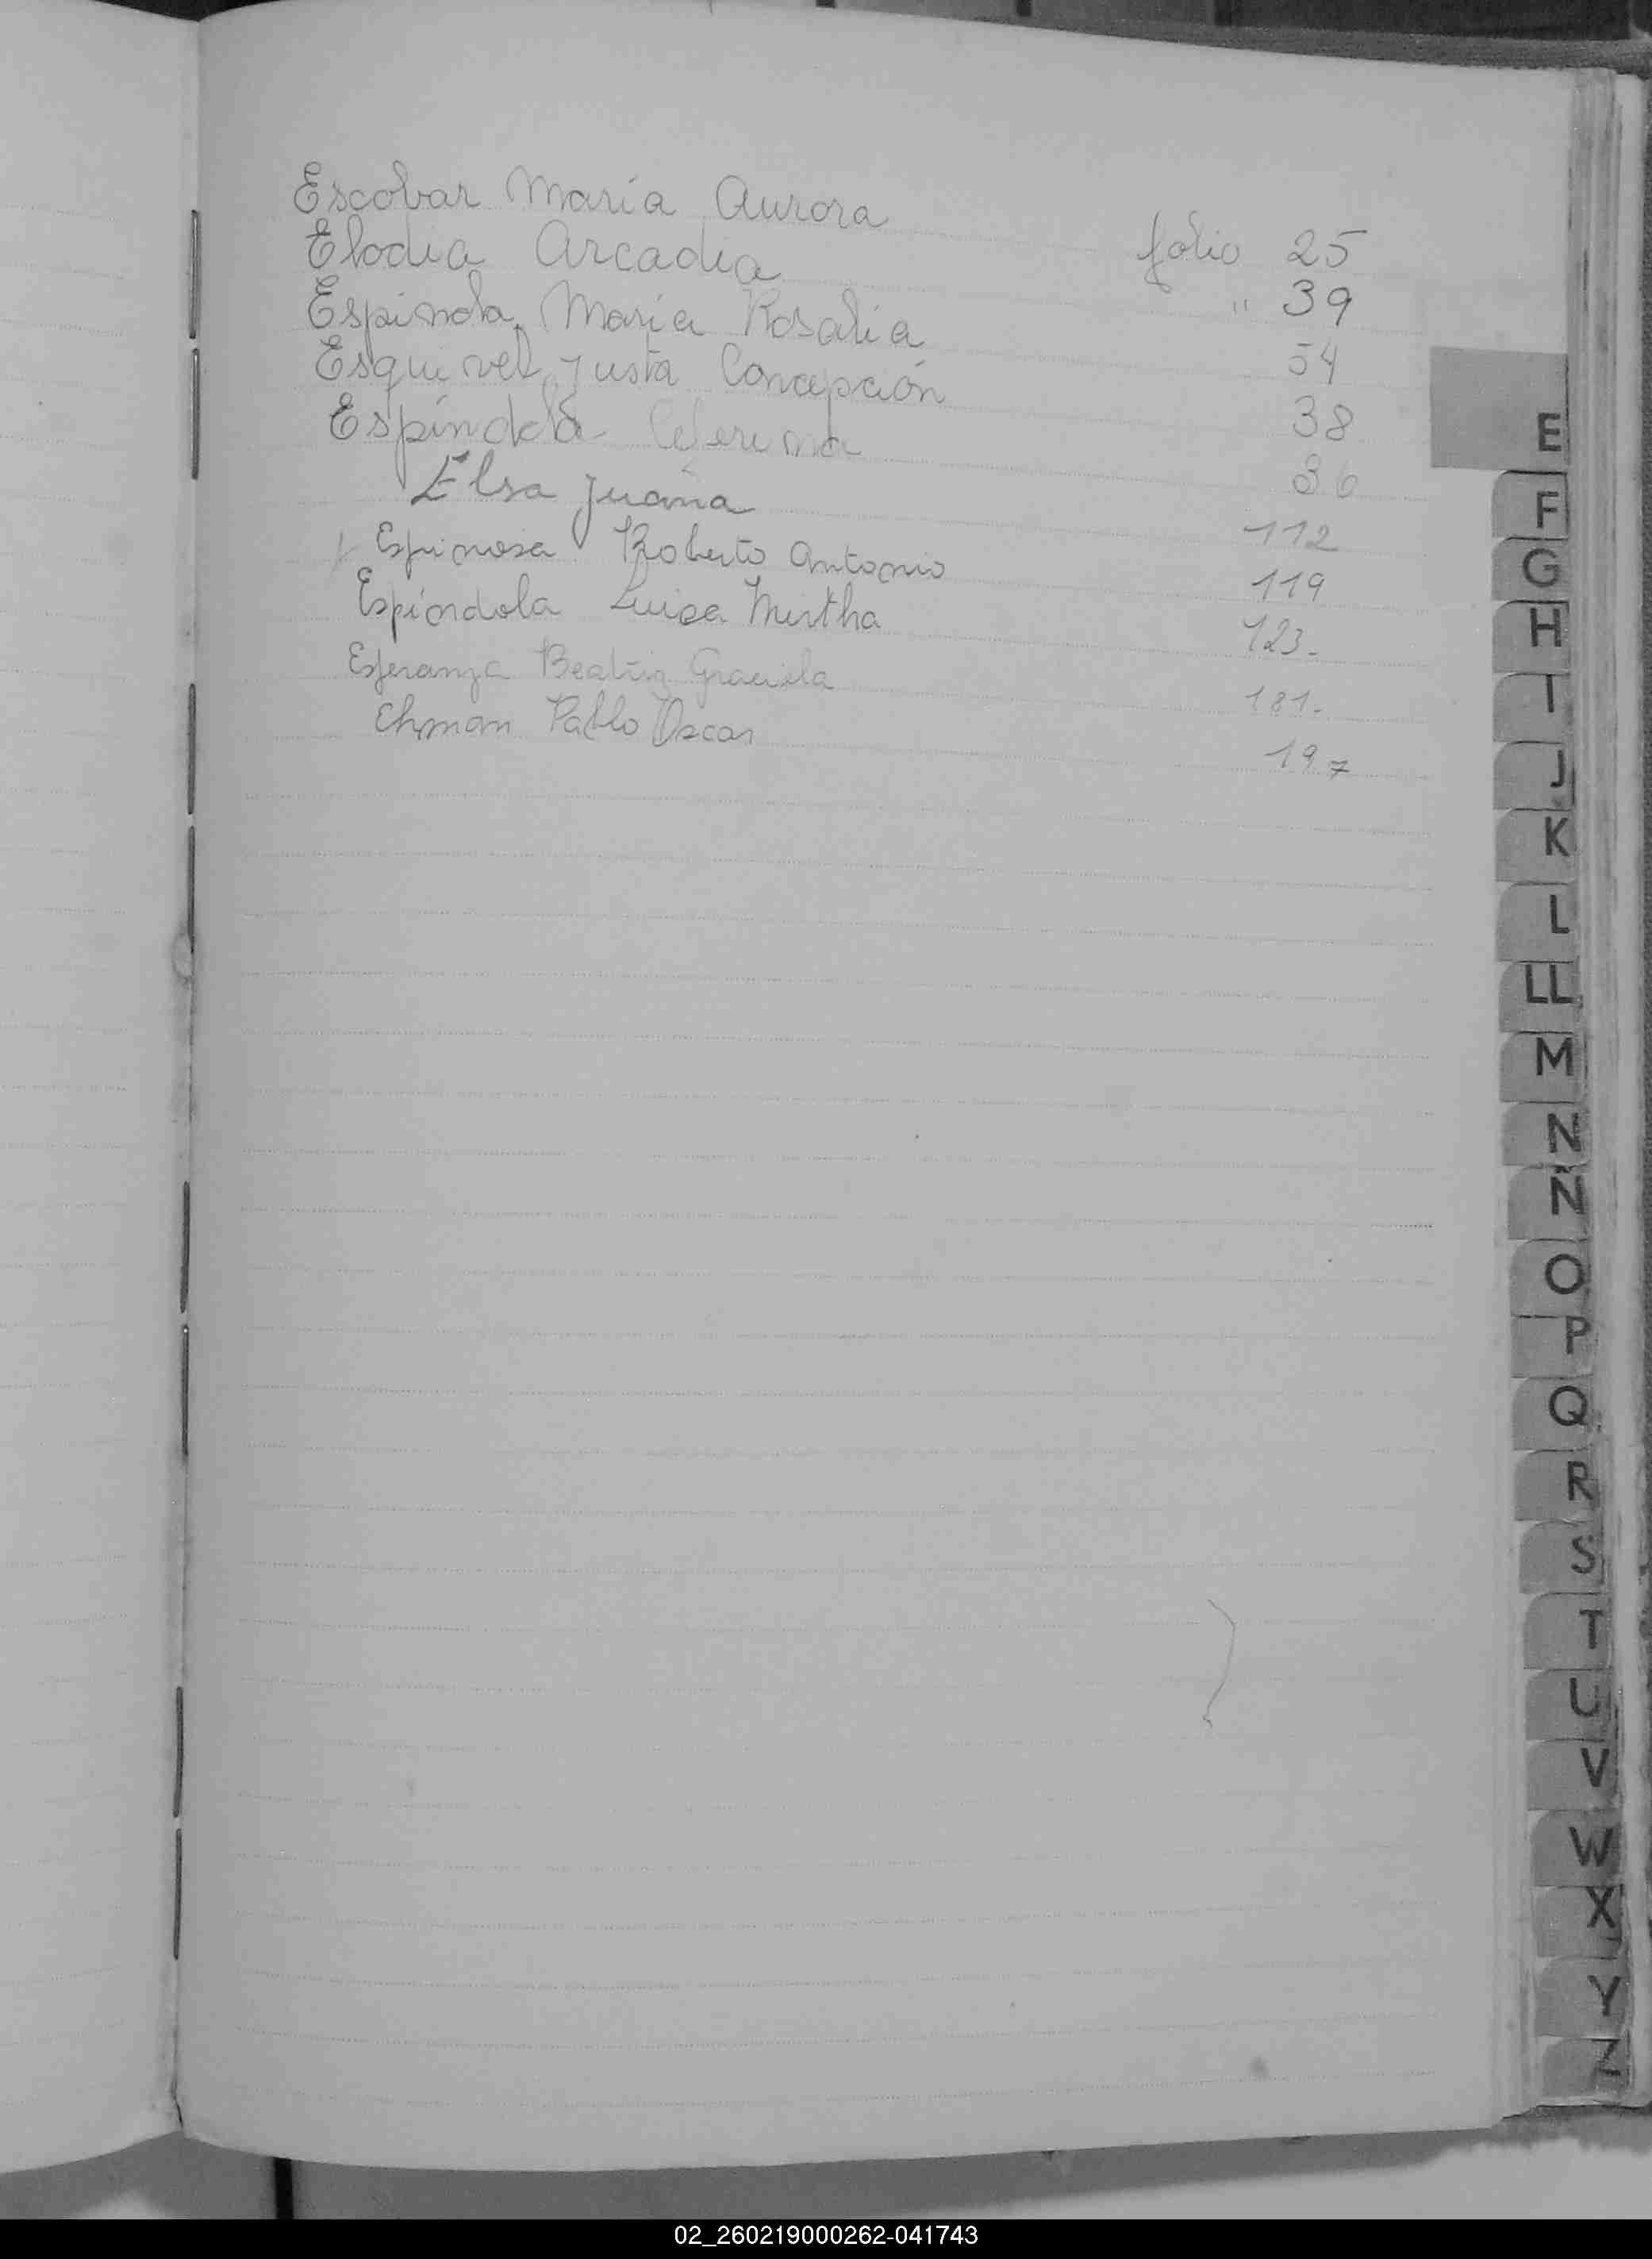 Escobar Maria Aurora folio 25
Elodia Arcadia " 39
Espinola, Maria Rosalia 54
Esquivel, Justa Concepción 38
Espíndola Ceferina 86
Elsa Juana 112
Espinosa Roberto Antonio 119
Espíndola Luisa Mirtha 123-
Esperanza Beatriz Graciela 181-
Ehman Pablo Oscar 197
E
F
G
H
I
J
K
L
LL
M
N
Ñ
O
P
Q
R
S
T
U
V
W
X
Y
Z
02_260219000262-041743